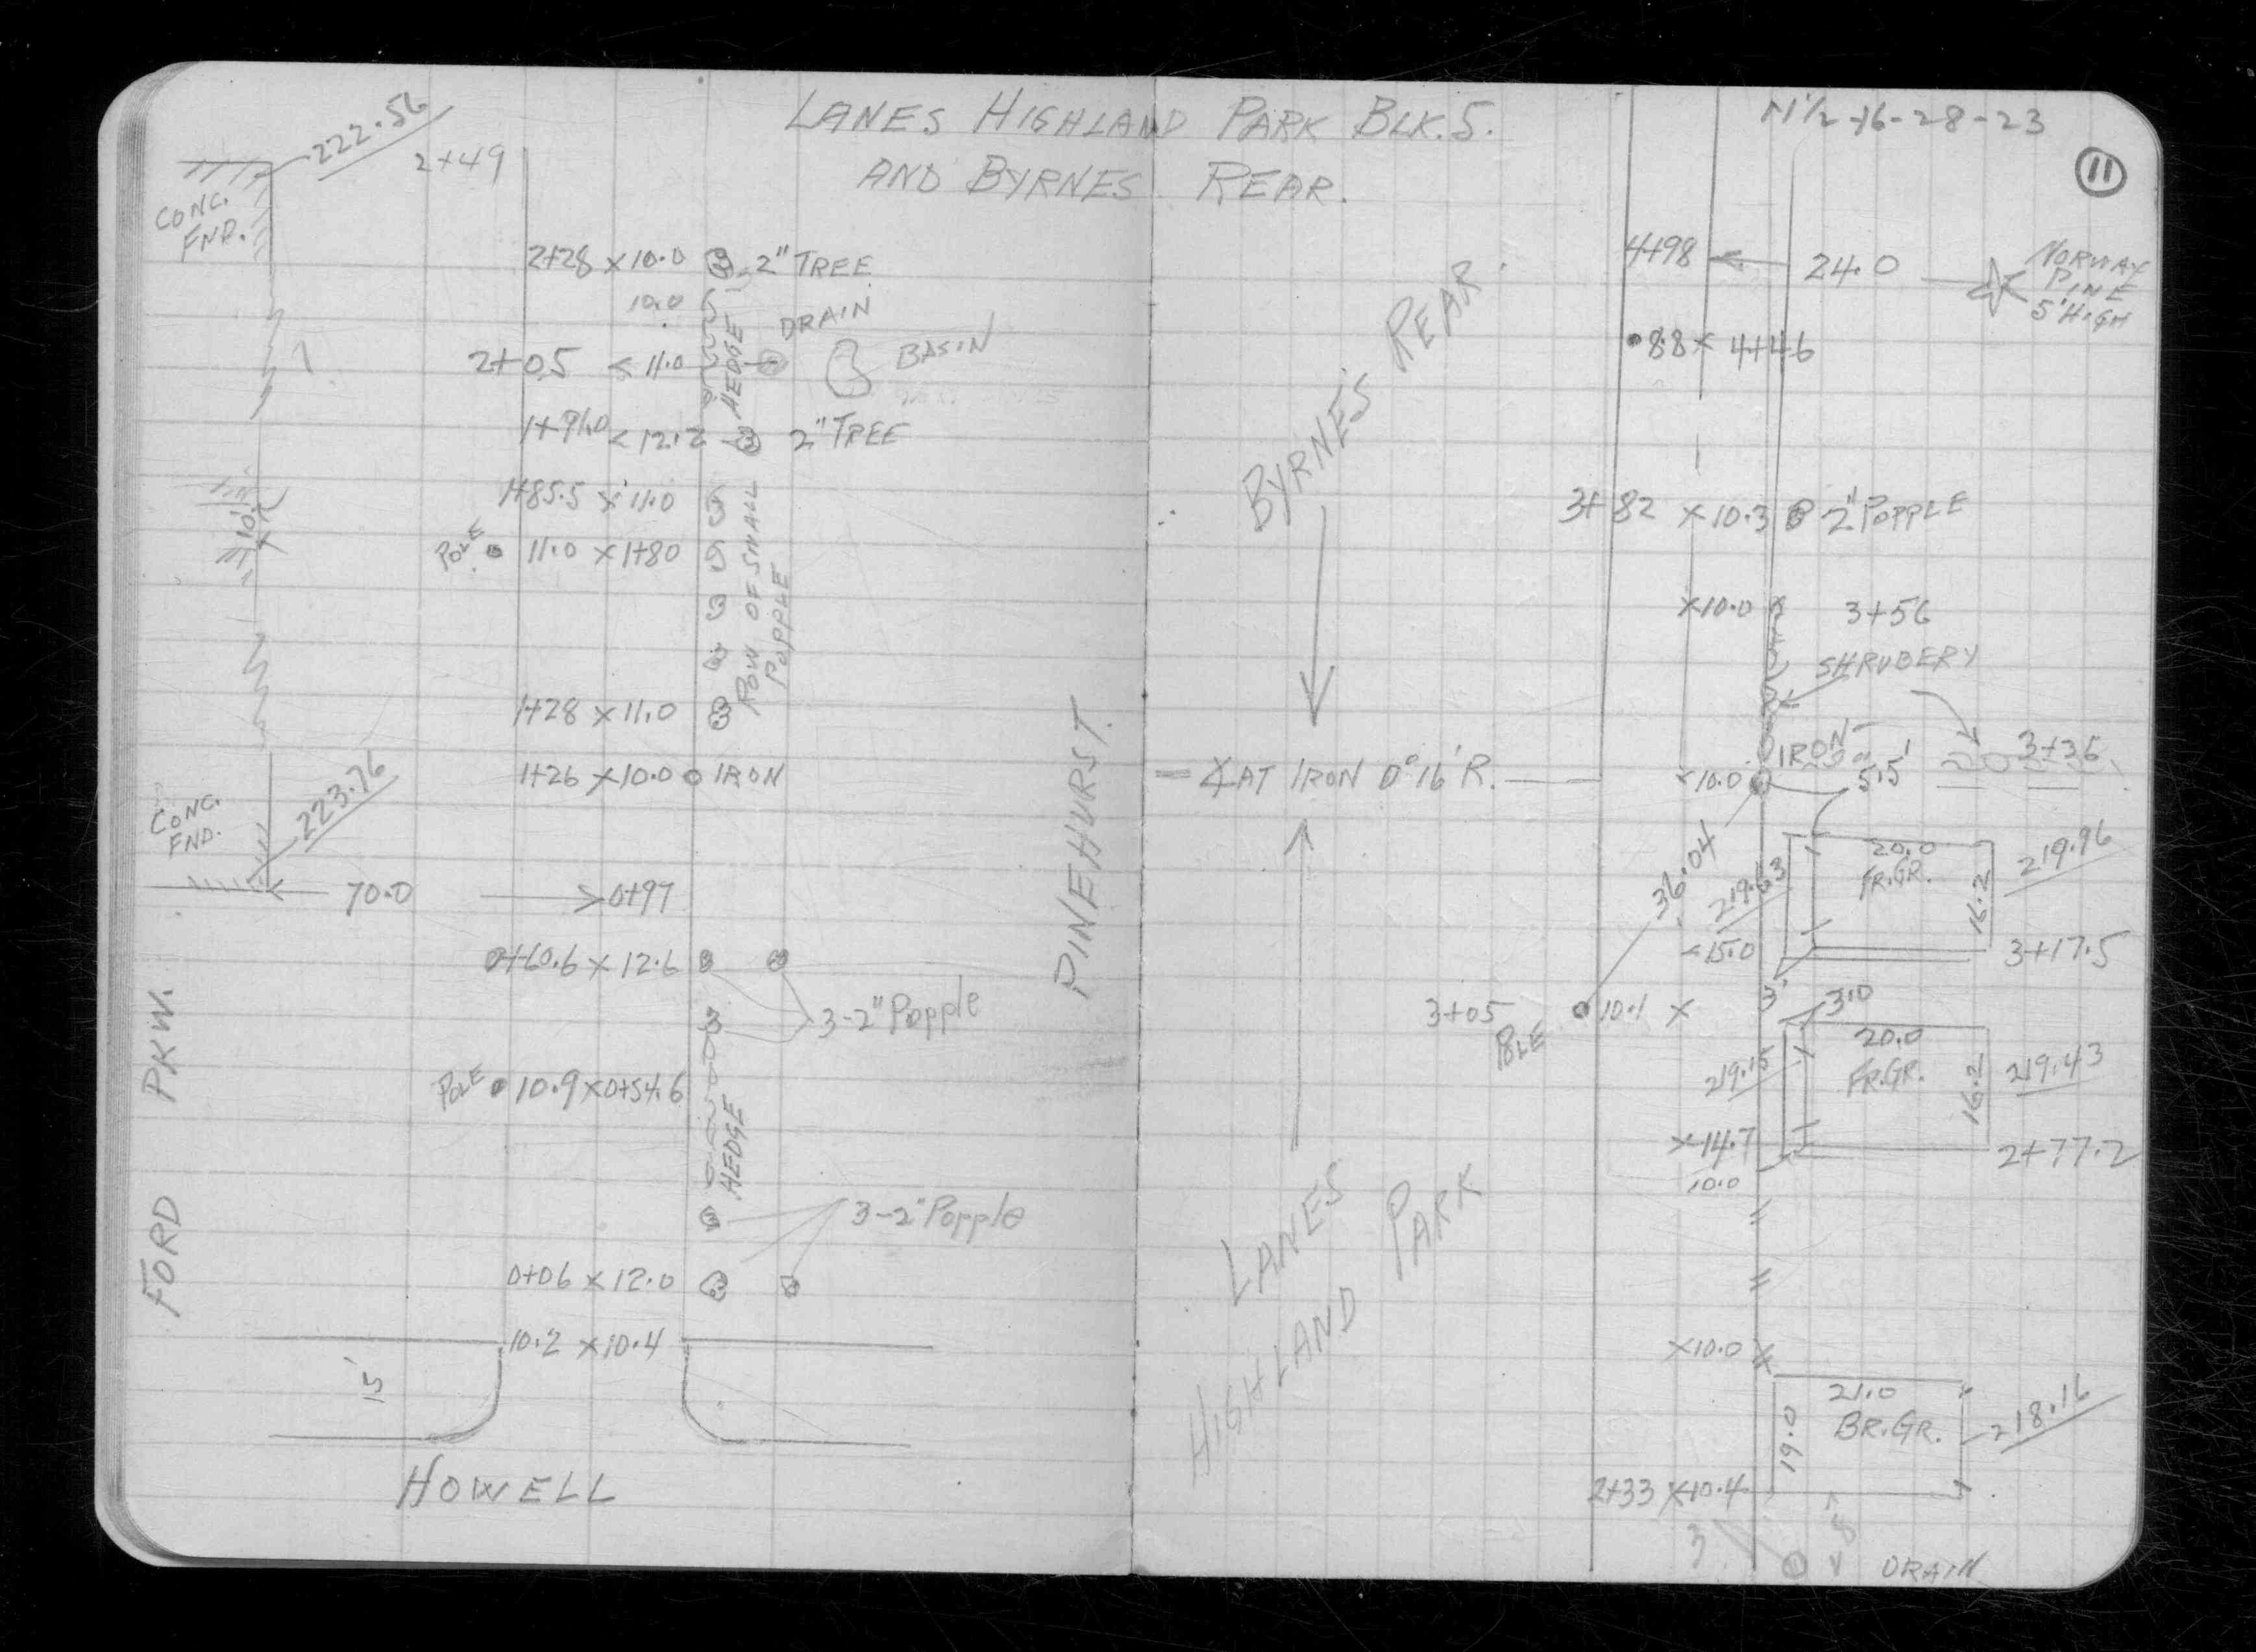 LANES HIGHLAND PARK BLK. 5.
AND BYRNES REAR.
N½-16-28-23
11
222.56
2+49
CONC.
FND.
2+28 x 10.0 2" TREE
10.0
DRAIN
HEDGE
2+05 < 11.0
BASIN
< 12.2 2" TREE
1+85.5 x 11.0
10'
POLE 11.0 x 1+80
ROW OF SMALL
POPPLE
1+28 x 11.0
1+26 x 10.0 IRON
223.76
CONC.
FND.
70.0 0+97
0+60.6 x 12.6
3-2" Popple
POLE 10.9 x 0+54.6
HEDGE
3-2" Popple
0+06 x 12.0
10.2 x 10.4
15'
HOWELL
FORD PKW.
PINEHURST.
BYRNES REAR.
∠ AT IRON 0°16' R.
LANES
HIGHLAND PARK
4+98 24.0
NORWAY
PINE
5' HIGH
8.8 x 4+46
3+82 x 10.3 2" POPPLE
x 10.0 3+56
SHRUBERY
IRON
3+36
10.0 5.5'
36.04
219.63
20.0
FR.GR.
16.2
219.96
15.0 3+17.5
3' 3.0
3+05 10.1 x
POLE
20.0
FR.GR.
16.2
219.15
219.43
x 14.7 2+77.2
10.0
x 10.0
21.0
BR.GR.
19.0
218.16
2+33 x 10.4
3
8
DRAIN